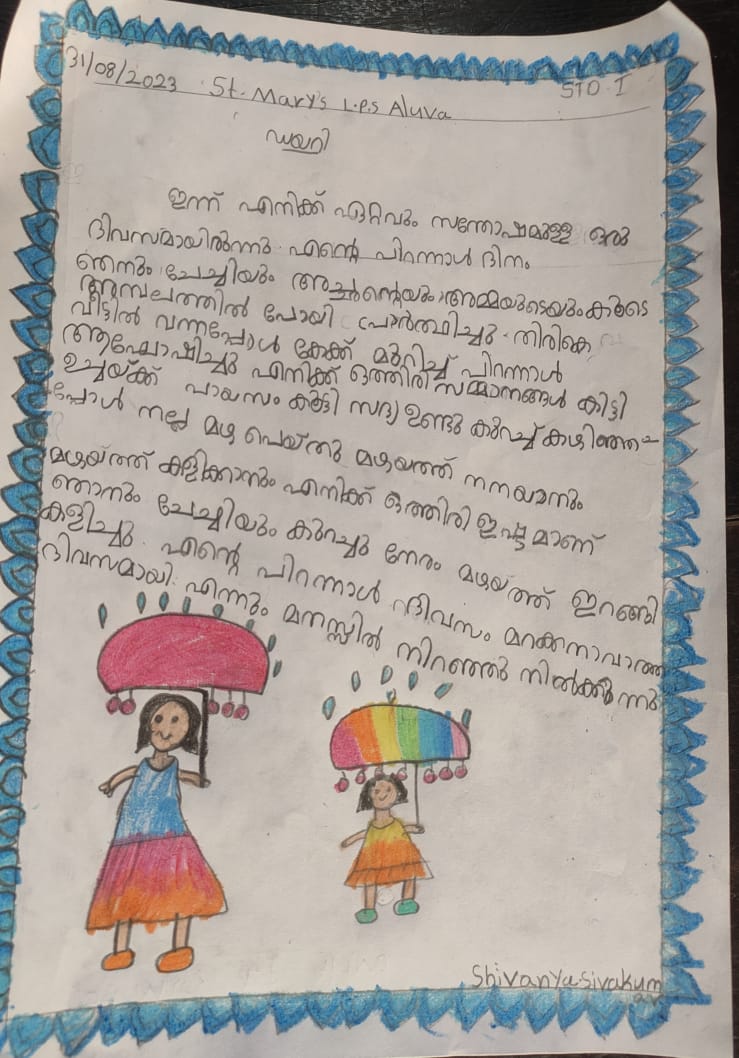 31/08/2023 St. Mary's L.P.S Aluva
STD-I
ഡയറി
ഇന്ന് എനിക്ക് ഏറ്റവും സന്തോഷമുള്ള ഒരു
ദിവസമായിരുന്നു. എന്റെ പിറന്നാൾ ദിനം
ഞനും ചേച്ചിയും അച്ഛന്റെയും അമ്മയുടെയും കൂടെ
അമ്പലത്തിൽ പോയി പ്രാർത്ഥിച്ചു. തിരികെ
വീട്ടിൽ വന്നപ്പോൾ കേക്ക് മുറിച്ച് പിറന്നാൾ
ആഘോഷിച്ചു എനിക്ക് ഒത്തിരി സമ്മാനങ്ങൾ കിട്ടി
ഉച്ചയ്ക്ക് പായസം കൂട്ടി സദ്യ ഉണ്ടു കുറച്ച് കഴിഞ്ഞ-
പ്പോൾ നല്ല മഴ പെയ്തു മഴയത്ത് നനയാനും
മഴയത്ത് കളിക്കാനും എനിക്ക് ഒത്തിരി ഇഷ്ടമാണ്
ഞാനും ചേച്ചിയും കുറച്ചു നേരം മഴയത്ത് ഇറങ്ങി
കളിച്ചു. എന്റെ പിറന്നാൾ ദിവസം മറക്കനാവാത്ത
ദിവസമായി. എന്നും മനസ്സിൽ നിറഞ്ഞു നിൽക്കുന്നു
Shivanya Sivakum
ar